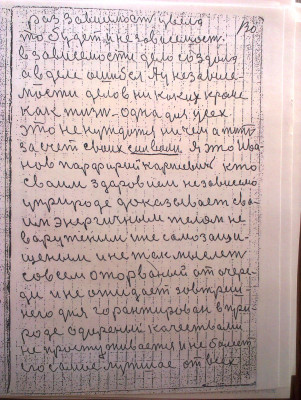 раз зависимост умела
130
то будет и независемост.
в зависемости дело создали
а в деле ошибся. А у независе-
мости делов ни каких кроме
как жизн-одна для усех
это не нуждится ни чем а
за счет своих сил Я это Ива-
нов парфирий карнеевич кто
своим здаровием независемо
у природе доказывает сва-
им энергичным телом не
варуженим и не самозащи-
щеным и не так мыслет
совсем оторваный от очере-
ди и не ожидает зовтрешн-
него дня горантирован в при-
роде одарений качествами
не простуживается и не болеет
луччае от всех